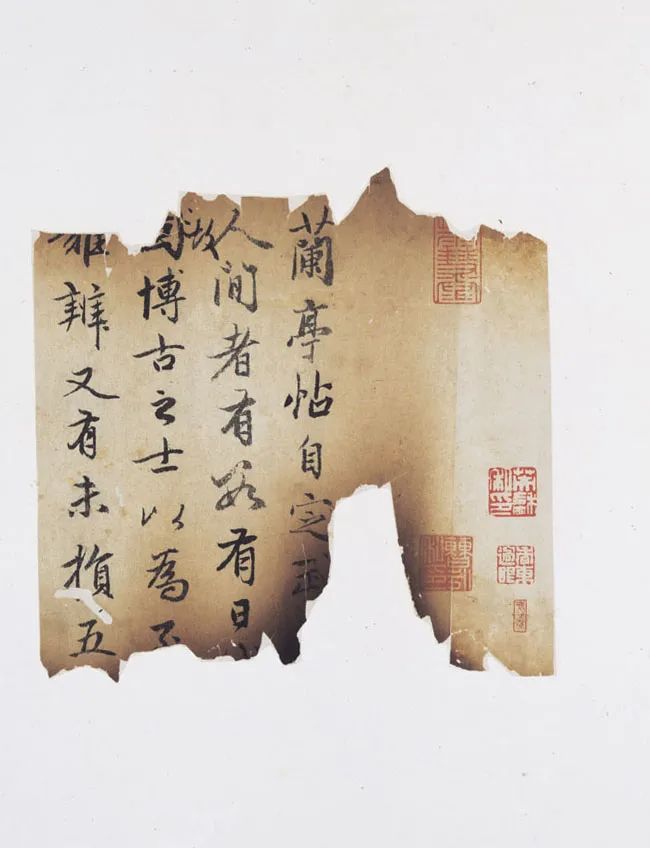 蘭亭帖自定武
人間者有數有日
故
博古之士以為
難辨又有未損五